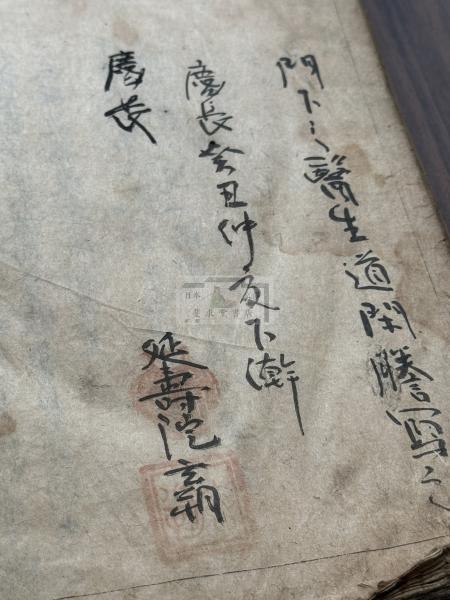 門下之醫生道閑謄寫之
慶長癸丑仲夏下澣
延壽院玄朔
慶
日本
書店